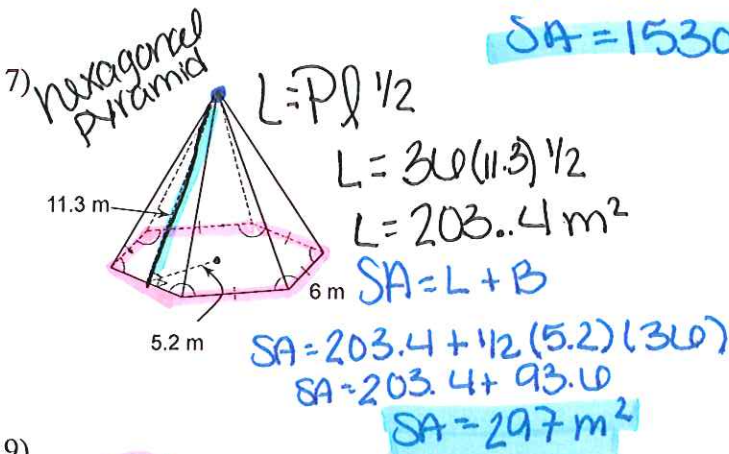 SA = 1530
7) hexagonal
pyramid
L = Pl 1/2
L = 36(11.3) 1/2
11.3 m
L = 203..4 m²
6 m
SA = L + B
5.2 m
SA = 203.4 + 1/2 (5.2)(36)
SA = 203.4 + 93.6
SA = 297 m²
9)